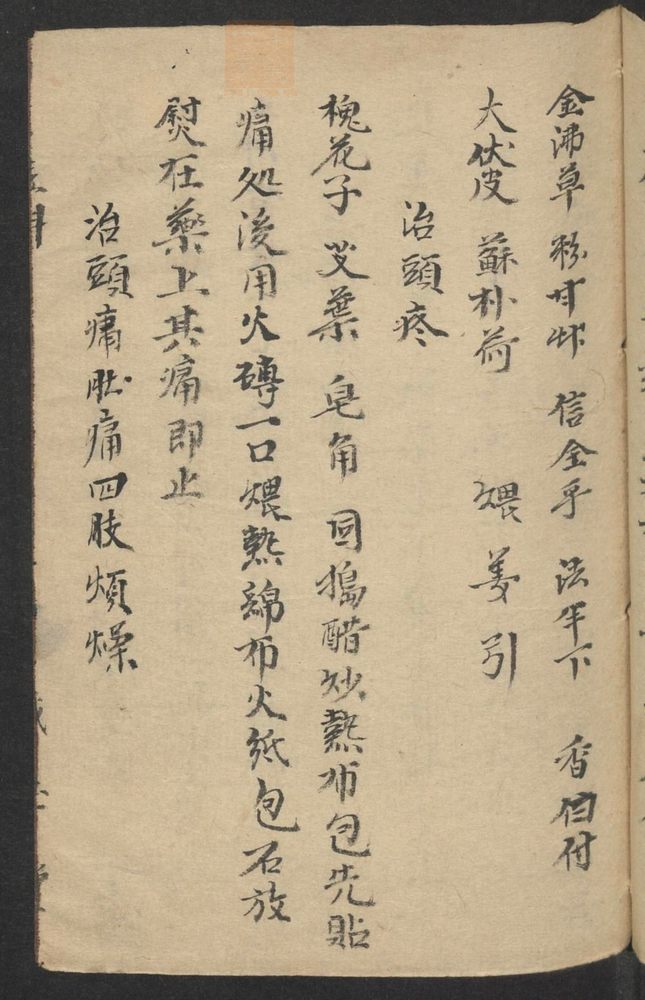 金沸草 粉甘艸 信全乎 法半下 香白付
大伏皮 蘇朴荷 煨姜引
治頭疼
槐花子 艾葉 皂角 同搗醋炒熱布包先貼
痛処後用火磚一口煨熱綿布火紙包石放
熨在藥上其痛即止
治頭痛肚痛四肢煩燥